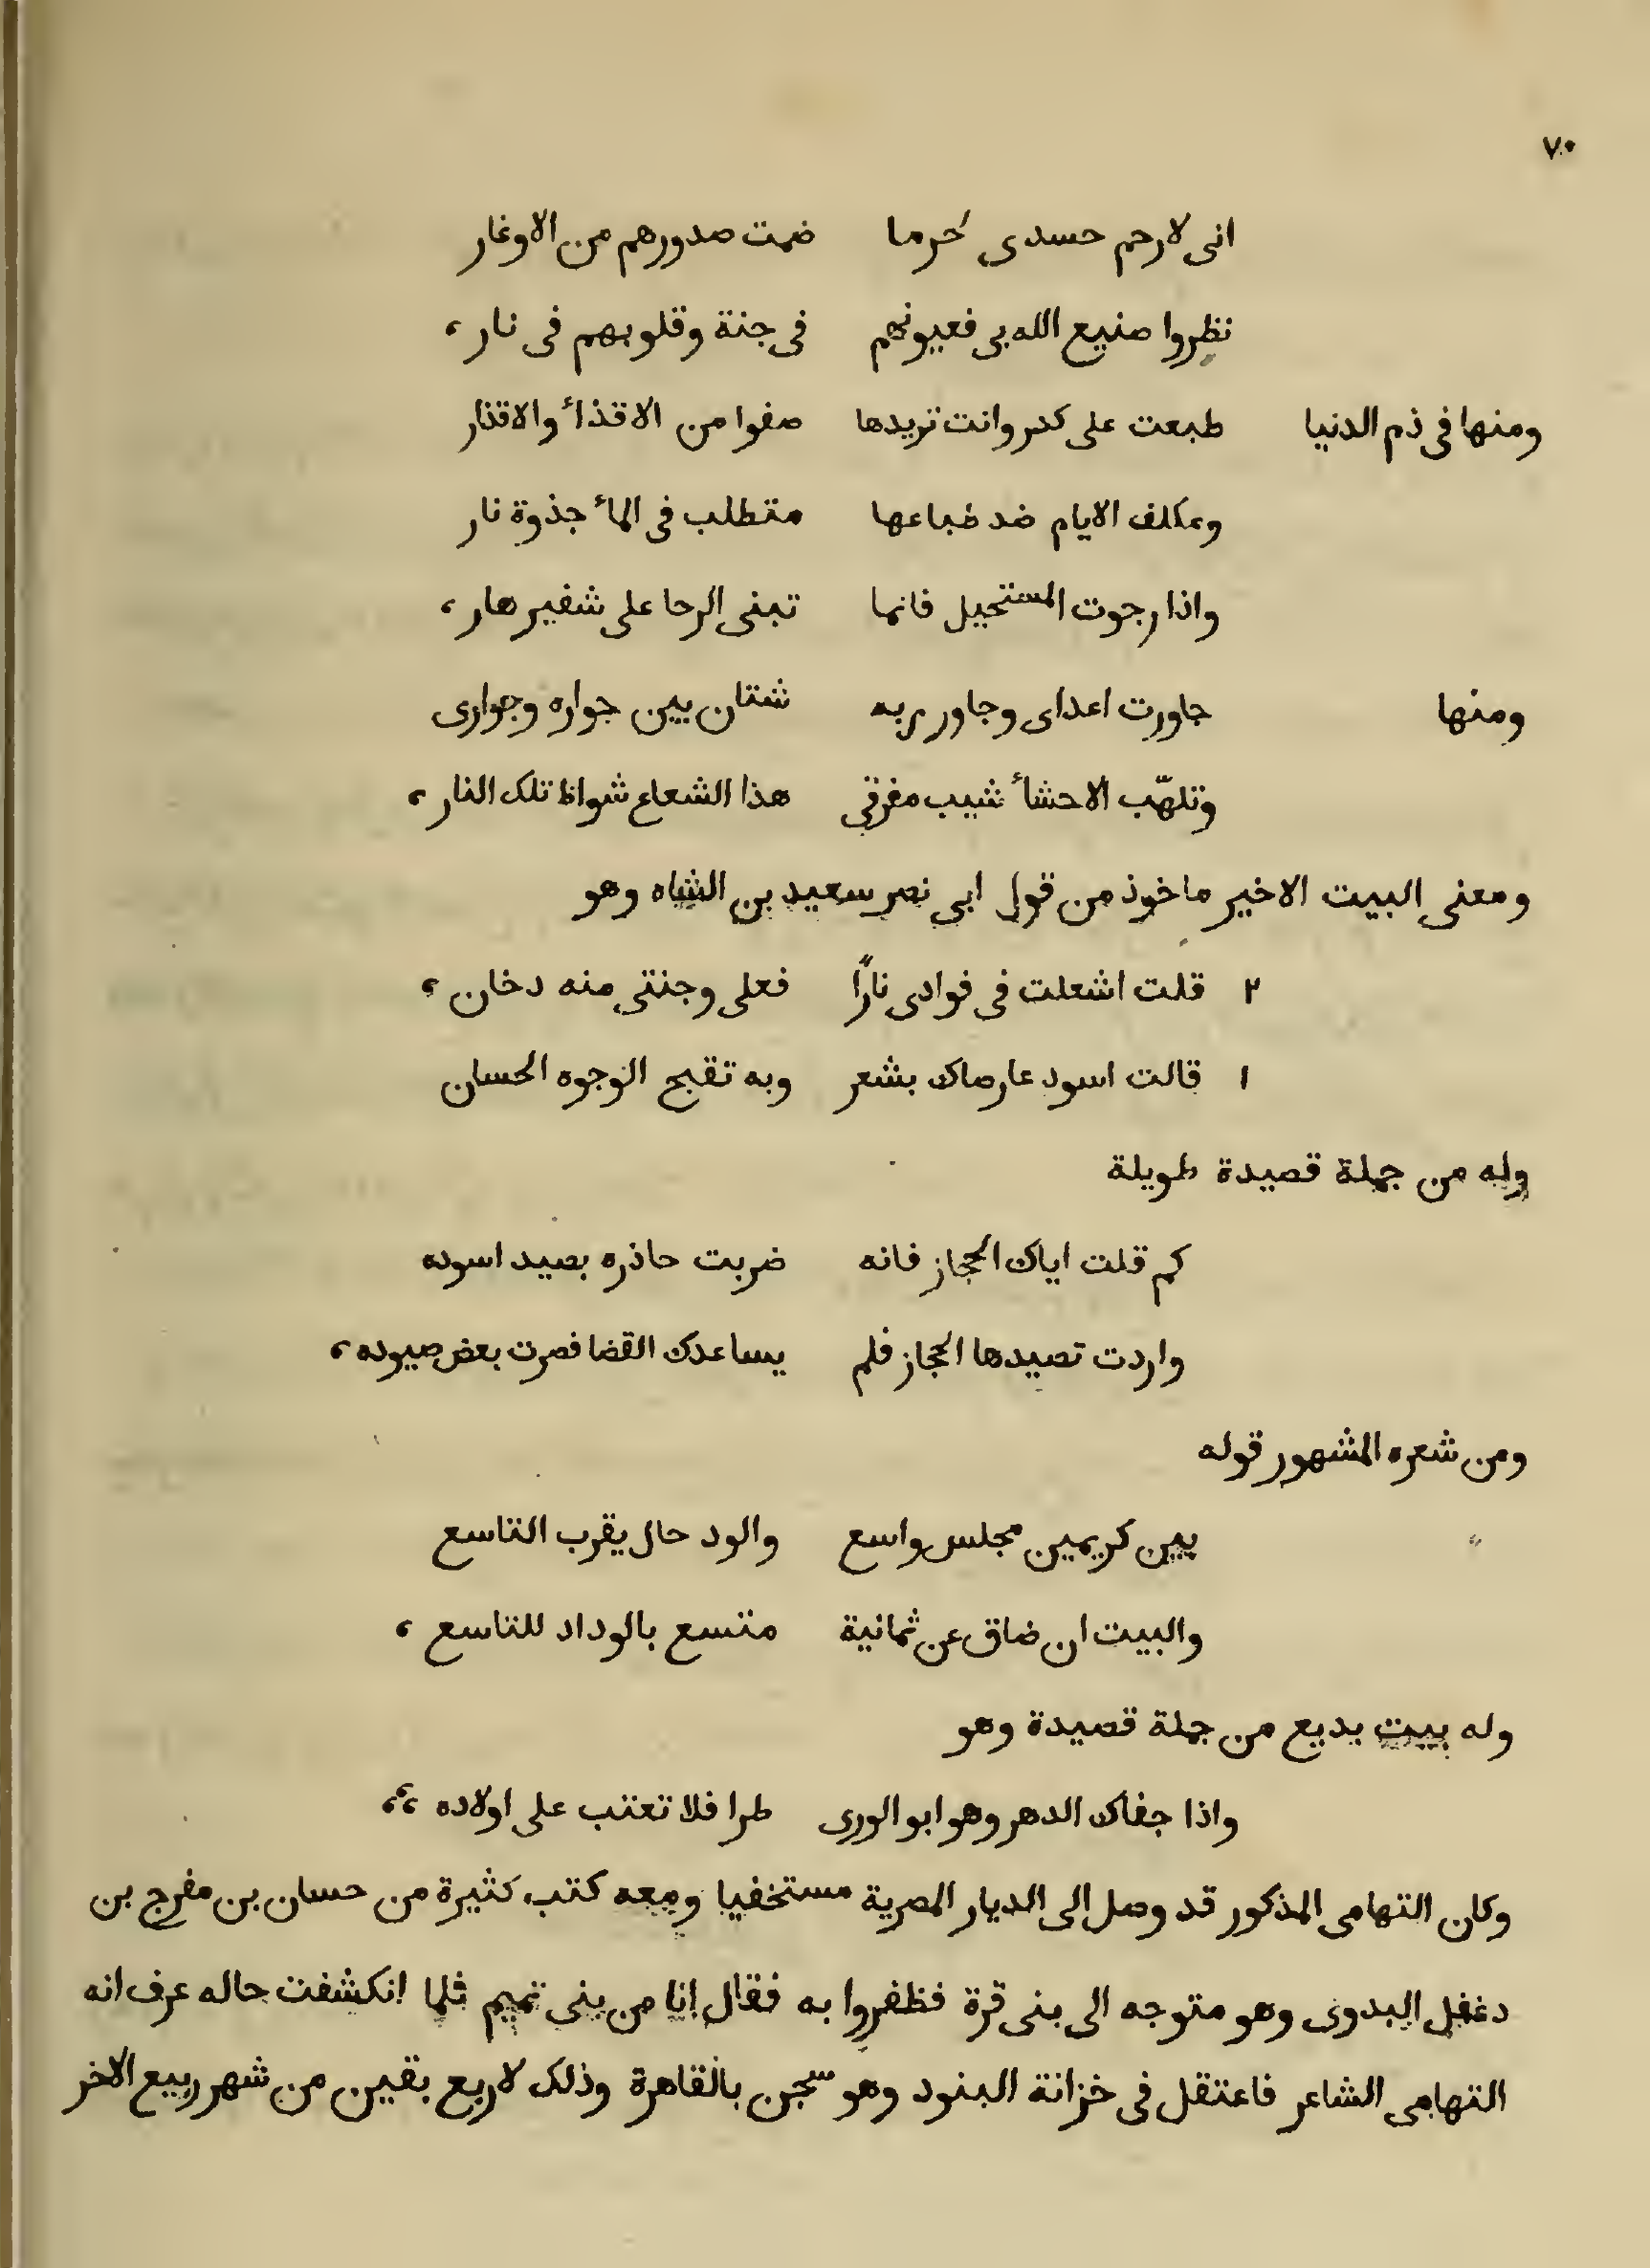 ٧٠
انى لارحم حسدى لحرما ضمت صدورهم من الاوغار
نظروا صنيع الله بى فعيونهم فى جنة وقلوبهم فى نار ،
ومنها فى ذم الدنيا طبعت على كدر وانت تريدها صفوا من الاقذأ والاقذار
ومكلف الايام ضد طباعها متطلب فى المأ جذوة نار
واذا رجوت المستحيل فانما تبنى الرحا على شفير هار ،
ومنها جاورت اعداى وجاور ربه شتان بين جواره وجوارى
وتلهّب الاحشأ شيب مفرقى هذا الشعاع شواظ تلك النار ،
ومعنى البيت الاخير ماخوذ من قول ابى نصر سعيد بن الشاه وهو
٢ قلت اشعلت فى فوادى نارًا فعلى وجنتى منه دخان ،
١ قالت اسود عارضاك بشعر وبه تقبح الوجوه الحسان
وله من جملة قصيدة طويلة
كم قلت اياك الحجاز فانه ضربت حاذره بصيد اسوده
واردت تصيدها الحجاز فلم يساعدك القضا فصرت بعض صيوده ،
ومن شعره المشهور قوله
بين كريمين مجلس واسع والود حال يقرب التاسع
والبيت ان ضاق عن ثمانية متسع بالوداد للتاسع ،
وله بيت بديع من جملة قصيدة وهو
واذا جفاك الدهر وهو ابو الورى طرا فلا تعتب على اولاده ،،
وكان التهامى المذكور قد وصل الى الديار المصرية مستخفيا ومعه كتب كثيرة من حسان بن مفرج بن
دغفل البدوى وهو متوجه الى بنى قرة فظفروا به فقال انا من بنى تميم فلما انكشفت حاله عرف انه
التهامى الشاعر فاعتقل فى خزانة البنود وهو سجن بالقاهرة وذلك لاربع بقين من شهر ربيع الاخر